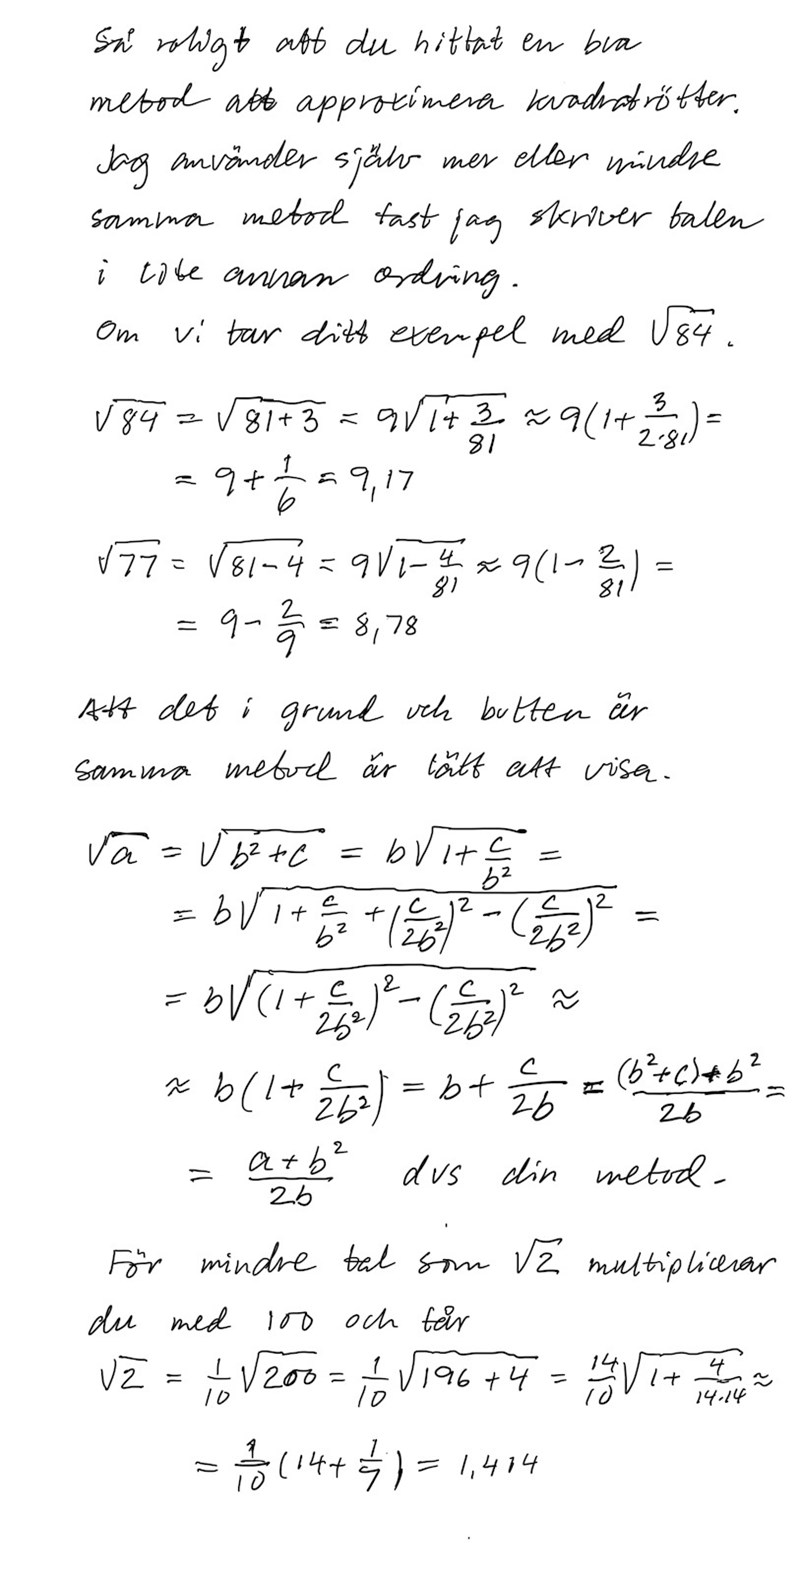 Så roligt att du hittat en bra
metod att approximera kvadratrötter.
Jag använder själv mer eller mindre
samma metod fast jag skriver talen
i lite annan ordning.
Om vi tar ditt exempel med √84.
√84 = √(81+3) = 9√(1+3/81) ≈ 9(1+3/(2·81)) =
= 9+1/6 = 9,17
√77 = √(81-4) = 9√(1-4/81) ≈ 9(1-2/81) =
= 9-2/9 = 8,78
Att det i grund och botten är
samma metod är lätt att visa.
√a = √(b²+c) = b√(1+c/b²) =
= b√(1+c/b²+(c/2b²)²-(c/2b²)²) =
= b√((1+c/2b²)²-(c/2b²)²) ≈
≈ b(1+c/2b²) = b+c/2b = ((b²+c)+b²)/2b =
= (a+b²)/2b dvs din metod.
För mindre tal som √2 multiplicerar
du med 100 och får
√2 = 1/10 √200 = 1/10 √(196+4) = 14/10 √(1+4/(14·14)) ≈
= 1/10 (14+1/7) = 1,414